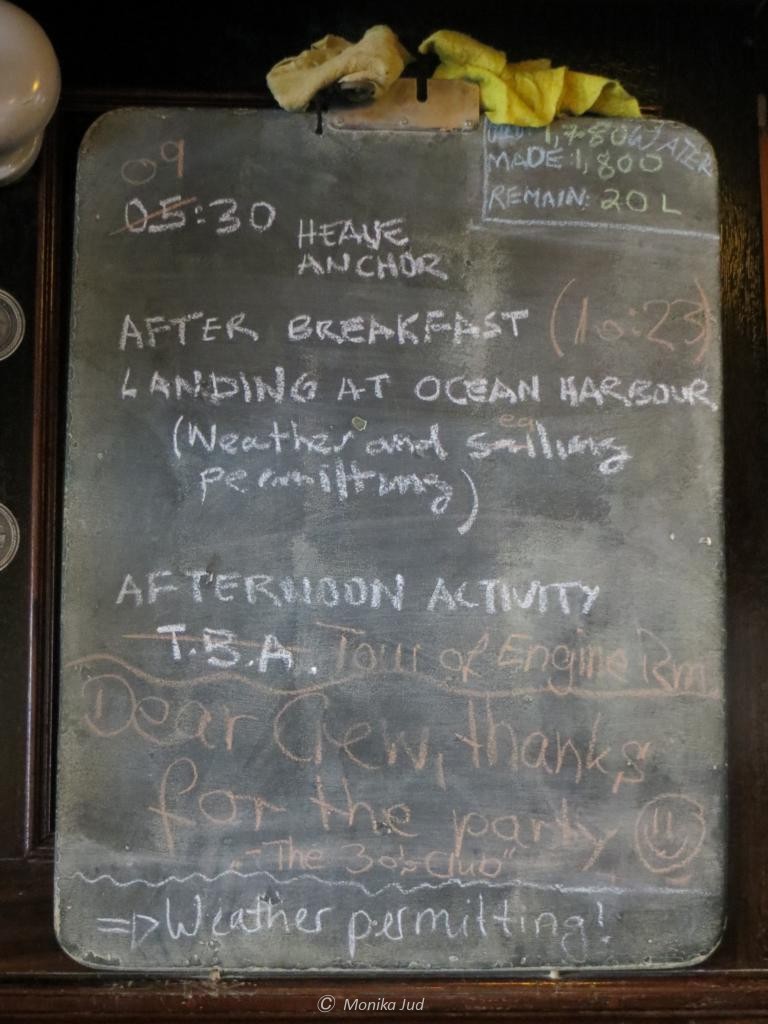 1,780 WATER
MADE: 1,800
REMAIN: 20 L
09
05:30
HEAVE
ANCHOR
AFTER BREAKFAST (10:23)
LANDING AT OCEAN HARBOUR
(Weather and sailing
ea
permitting)
AFTERNOON ACTIVITY
T.B.A. Tour of Engine Rm
Dear Crew, thanks
for the party
- "The 30's Club"
=> Weather permitting!
© Monika Jud